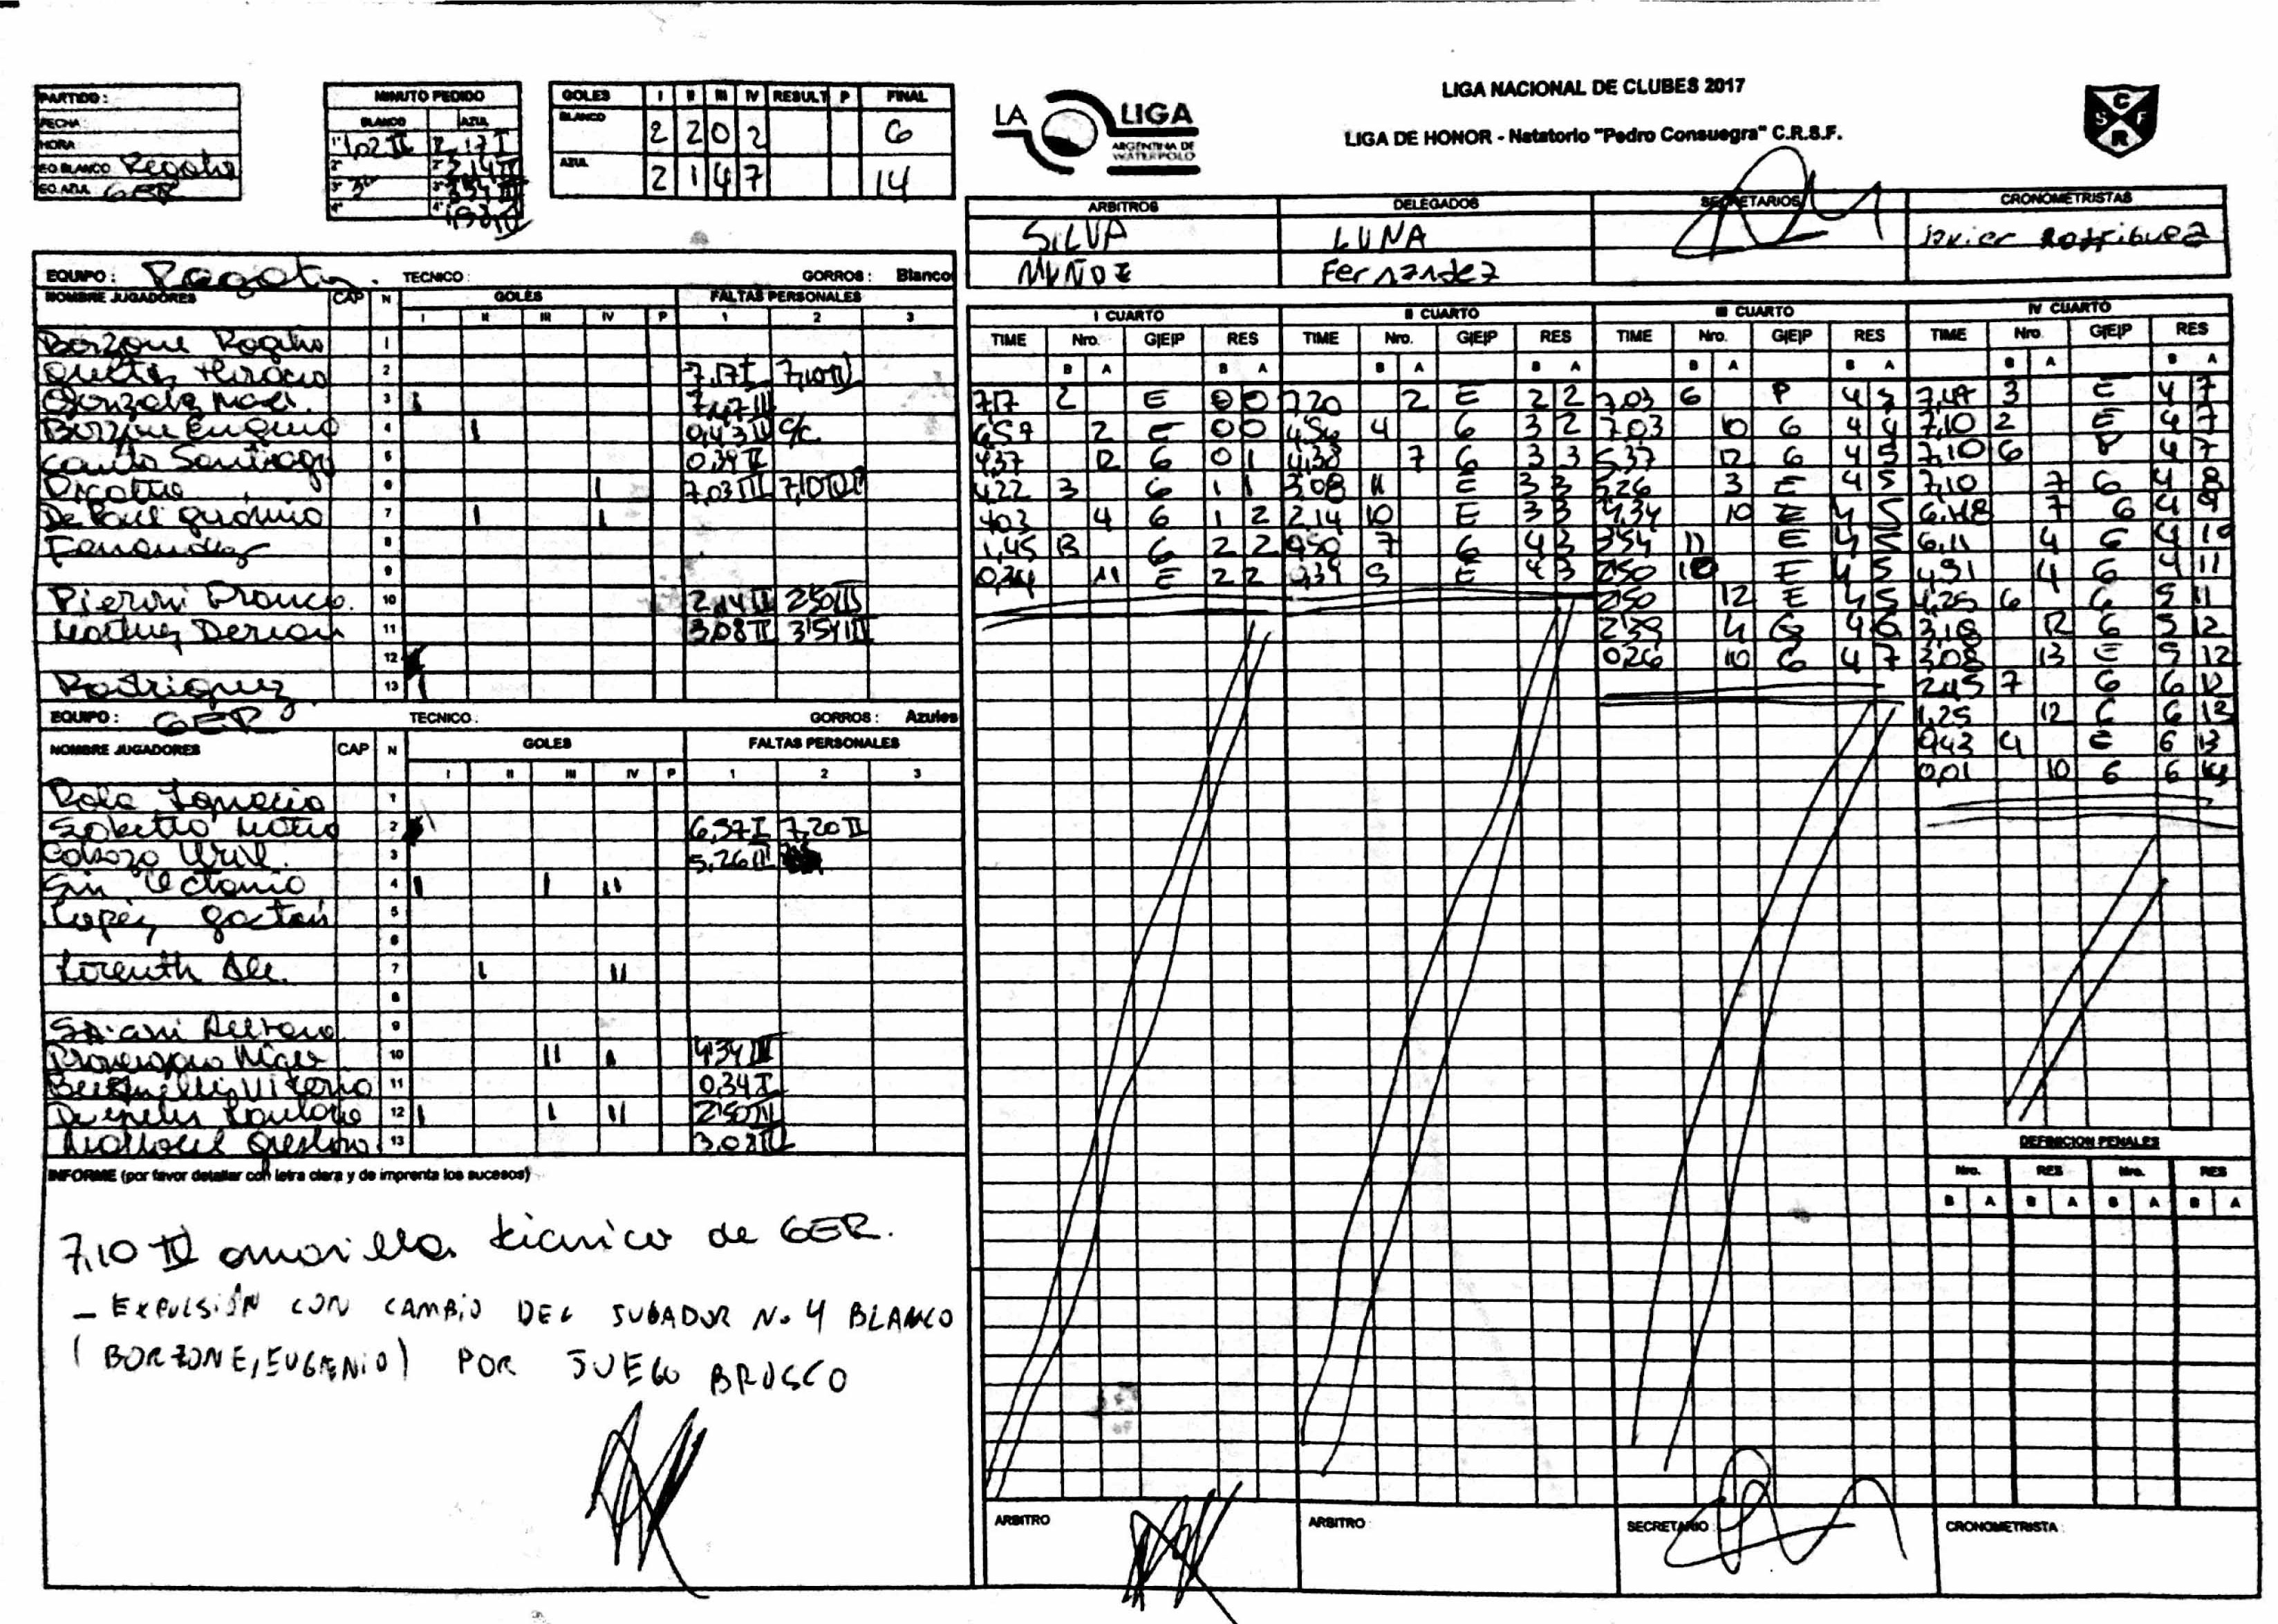 LIGA NACIONAL DE CLUBES 2017
LIGA DE HONOR - Natatorio "Pedro Consuegra" C.R.S.F.
LA LIGA
ARGENTINA DE
WATERPOLO
C
S F
R
PARTIDO :
FECHA
HORA
EQ BLANCO Regatas
EQ. AZUL GER
MINUTO PEDIDO
BLANCO AZUL
1° 1,02 II 2,17 I
2° 2° 2,14 II
3° 3° 3,54 III
4° 4°
GOLES I II III IV RESULT P FINAL
BLANCO 2 2 0 2 6
AZUL 2 1 4 7 14
ARBITROS DELEGADOS SECRETARIOS CRONOMETRISTAS
SILVA LUNA Javier Rodriguez
MUÑOZ Fernandez
EQUIPO : Regatas TECNICO : GORROS : Blanco
NOMBRE JUGADORES CAP N GOLES FALTAS PERSONALES
I II III IV P 1 2 3
Borzone Rogelio 1
Horacio 2 7,17 I 7,10 IV
Gonzalez 3 I 7,47 III
Borzone Eugenio 4 I 0,43 IV C/C
Santiago 5 0,39 II
6 I 7,03 III 7,10 IV
De Paul 7 I I
Fernandez 8
9
Pieroni Franco 10 2,14 II 2,50 III
11 3,08 II 3,54 III
12
Rodriguez 13 I
EQUIPO : GER TECNICO : GORROS : Azules
NOMBRE JUGADORES CAP N GOLES FALTAS PERSONALES
I II III IV P 1 2 3
Ignacio 1
2 6,57 I 7,20 II
3 5,26 III
4 I I II
Lopez Gaston 5
6
7 I II
8
9
10 II I 4,34 III
11 0,34 I
12 I I II 2,50 III
13 3,08 IV
INFORME (por favor detallar con letra clara y de imprenta los sucesos)
7,10 IV amarilla técnico de GER.
- EXPULSIÓN CON CAMBIO DEL JUGADOR No 4 BLANCO
(BORZONE, EUGENIO) POR JUEGO BRUSCO
I CUARTO
TIME Nro. G|E|P RES
B A B A
7,17 2 E 0 0
6,57 2 E 0 0
4,37 12 G 0 1
4,22 3 G 1 1
4,03 4 G 1 2
1,45 13 G 2 2
0,34 11 E 2 2
II CUARTO
TIME Nro. G|E|P RES
B A B A
7,20 2 E 2 2
4,56 4 G 3 2
4,38 7 G 3 3
3,08 11 E 3 3
2,14 10 E 3 3
0,50 7 G 4 3
0,39 5 E 4 3
III CUARTO
TIME Nro. G|E|P RES
B A B A
7,03 6 P 4 3
7,03 10 G 4 4
5,37 12 G 4 5
5,26 3 E 4 5
4,34 10 E 4 5
3,54 11 E 4 5
2,50 10 E 4 5
2,50 12 E 4 5
2,39 4 G 4 6
0,26 10 G 4 7
IV CUARTO
TIME Nro. G|E|P RES
B A B A
7,47 3 E 4 7
7,10 2 E 4 7
7,10 6 P 4 7
7,10 7 G 4 8
6,48 7 G 4 9
6,11 4 G 4 10
4,51 4 G 4 11
4,25 6 G 5 11
3,18 12 G 5 12
3,08 13 E 5 12
2,45 7 G 6 12
1,25 12 G 6 13
0,43 4 E 6 13
0,01 10 G 6 14
DEFINICION PENALES
Nro. RES Nro. RES
B A B A B A B A
ARBITRO ARBITRO SECRETARIO : CRONOMETRISTA :